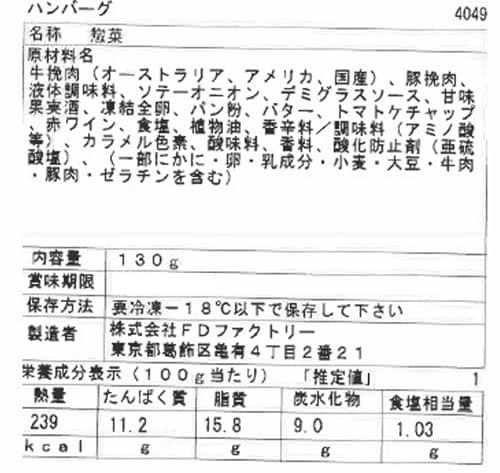 ハンバーグ
4049
名称 惣菜
原材料名
牛挽肉（オーストラリア、アメリカ、国産）、豚挽肉、
液体調味料、ソテーオニオン、デミグラスソース、甘味
果実酒、凍結全卵、パン粉、バター、トマトケチャップ
、赤ワイン、食塩、植物油、香辛料／調味料（アミノ酸
等）、カラメル色素、酸味料、香料、酸化防止剤（亜硫
酸塩）、（一部にかに・卵・乳成分・小麦・大豆・牛肉
・豚肉・ゼラチンを含む）
内容量 １３０ｇ
賞味期限
保存方法 要冷凍－１８℃以下で保存して下さい
製造者 株式会社ＦＤファクトリー
東京都葛飾区亀有４丁目２番２１
栄養成分表示（１００ｇ当たり） 「推定値」 1
熱量 たんぱく質 脂質 炭水化物 食塩相当量
239 11.2 15.8 9.0 1.03
ｋｃａｌ ｇ ｇ ｇ ｇ